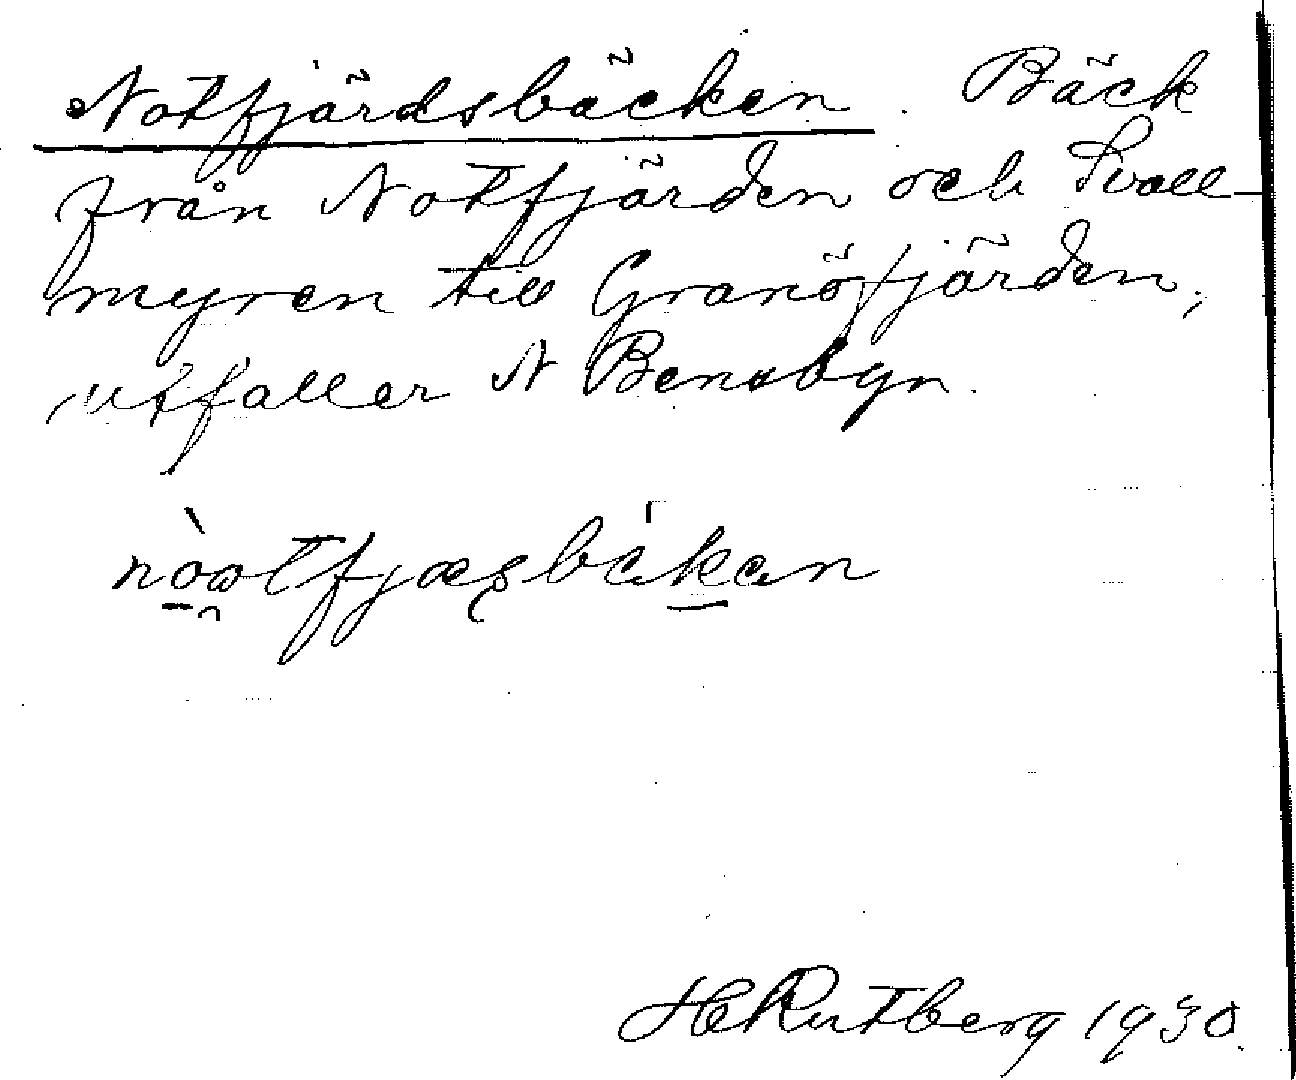 Notfjärdsbäcken. Bäck
från Notfjärden och Svall-
myren till Granöfjärden,
utfaller N Bensbyn.
nòotfjæsbäkan
HRutberg 1930.